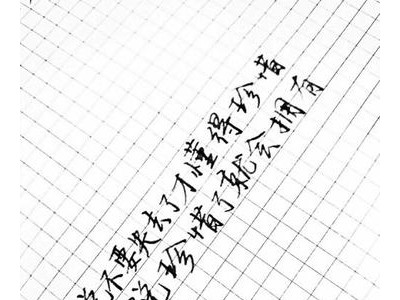 不要失去了才懂得珍惜
说珍惜了就会拥有